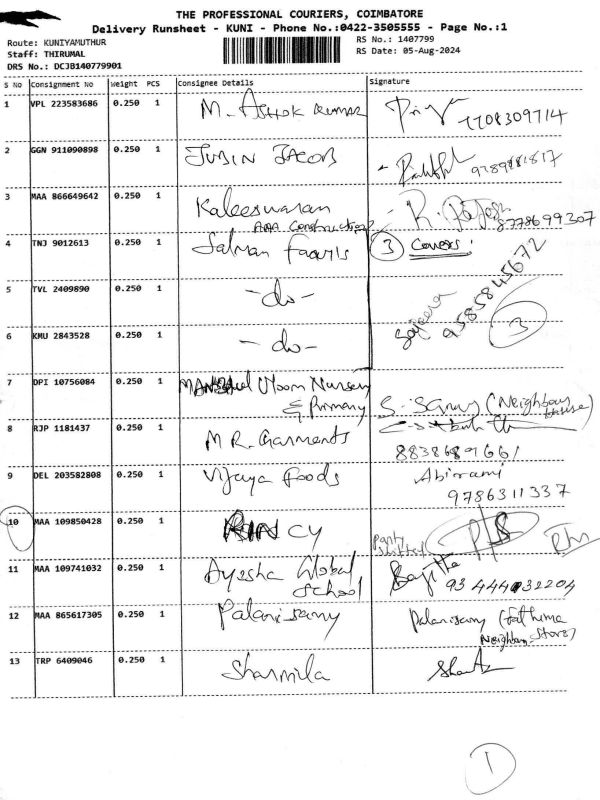 THE PROFESSIONAL COURIERS, COIMBATORE
Delivery Runsheet - KUNI - Phone No.:0422-3505555 - Page No.:1
Route: KUNIYAMUTHUR
RS No.: 1407799
Staff: THIRUMAL
RS Date: 05-Aug-2024
DRS No.: DCJB140779901
S No Consignment No Weight PCS Consignee Details Signature
1 VPL 223583686 0.250 1 M. Ashok Kumar 7708309714
2 GGN 911090898 0.250 1 JUBIN JACOB
3 MAA 866649642 0.250 1 Kaleeswaran R. Rajesh
AAA Construction 8778699307
4 TNJ 9012613 0.250 1 Salman Faaris 3 Covers:
5 TVL 2409890 0.250 1 -do- Sajeena 9585845672
6 KMU 2843528 0.250 1 -do- 3
7 DPI 10756084 0.250 1 Uloom Nursery
& Primary (Neighbour House)
8 RJP 1181437 0.250 1 M R. Garments 8838689661
9 DEL 203582808 0.250 1 Vijaya Foods Abirami
9786311337
10 MAA 109850428 0.250 1 RINCY
Party Shifted
11 MAA 109741032 0.250 1 Ayesha Global
School
12 MAA 865617305 0.250 1 Palanisamy Palanisamy (Fathima
Neighbour Store)
13 TRP 6409046 0.250 1 Sharmila
1